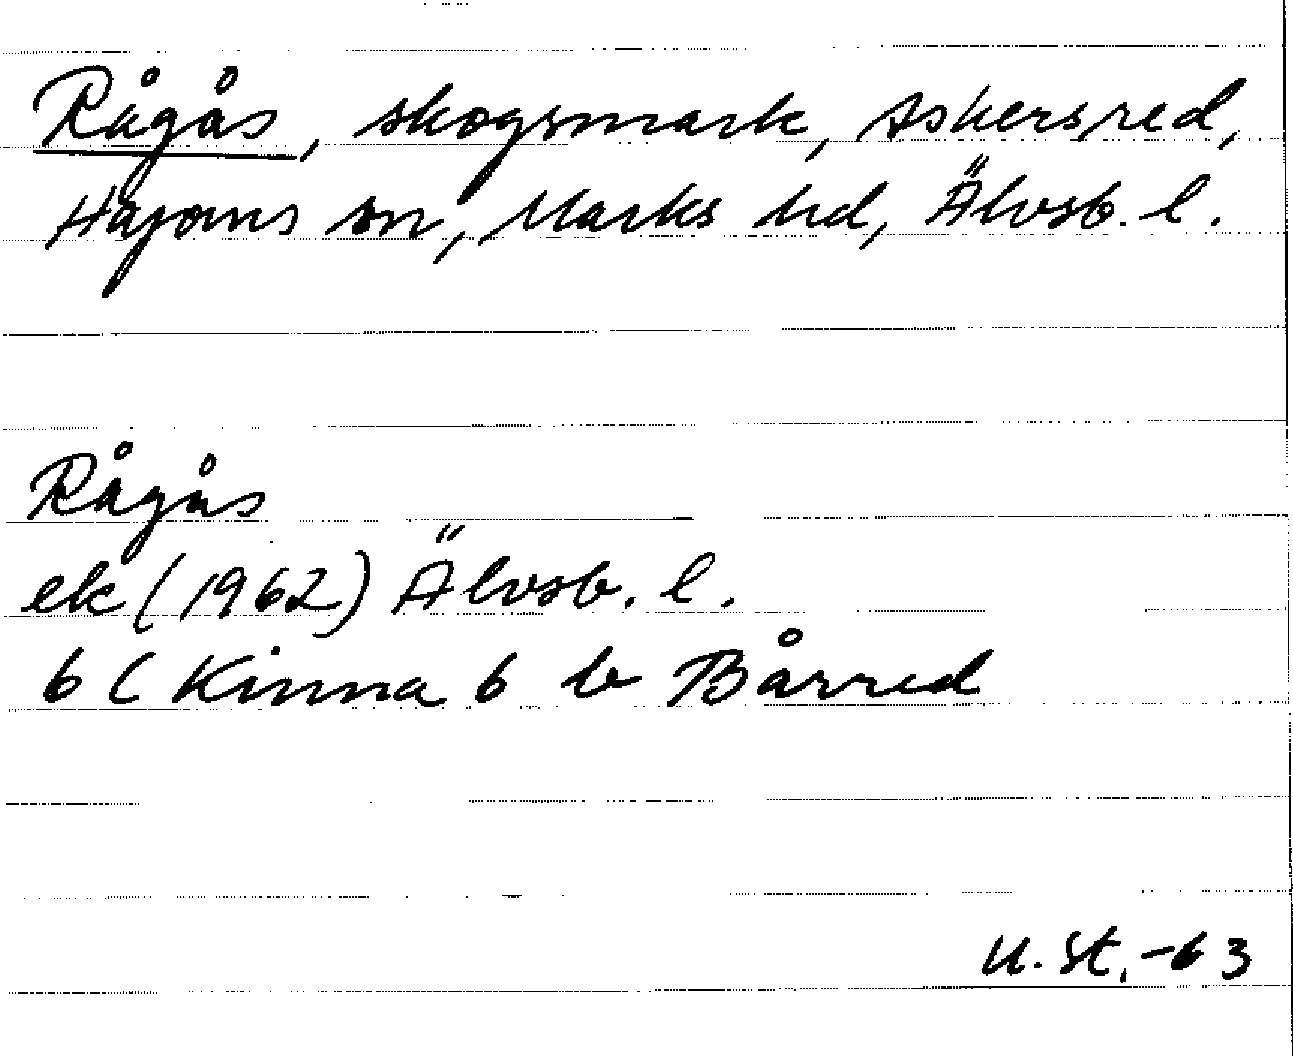 Rågås, skogsmark, Askersred,
Hajoms sn, Marks hd, Älvsb. l.
Rågås
ek (1962) Älvsb. l.
6 C Kinna 6 b Bårred
U. St. -63